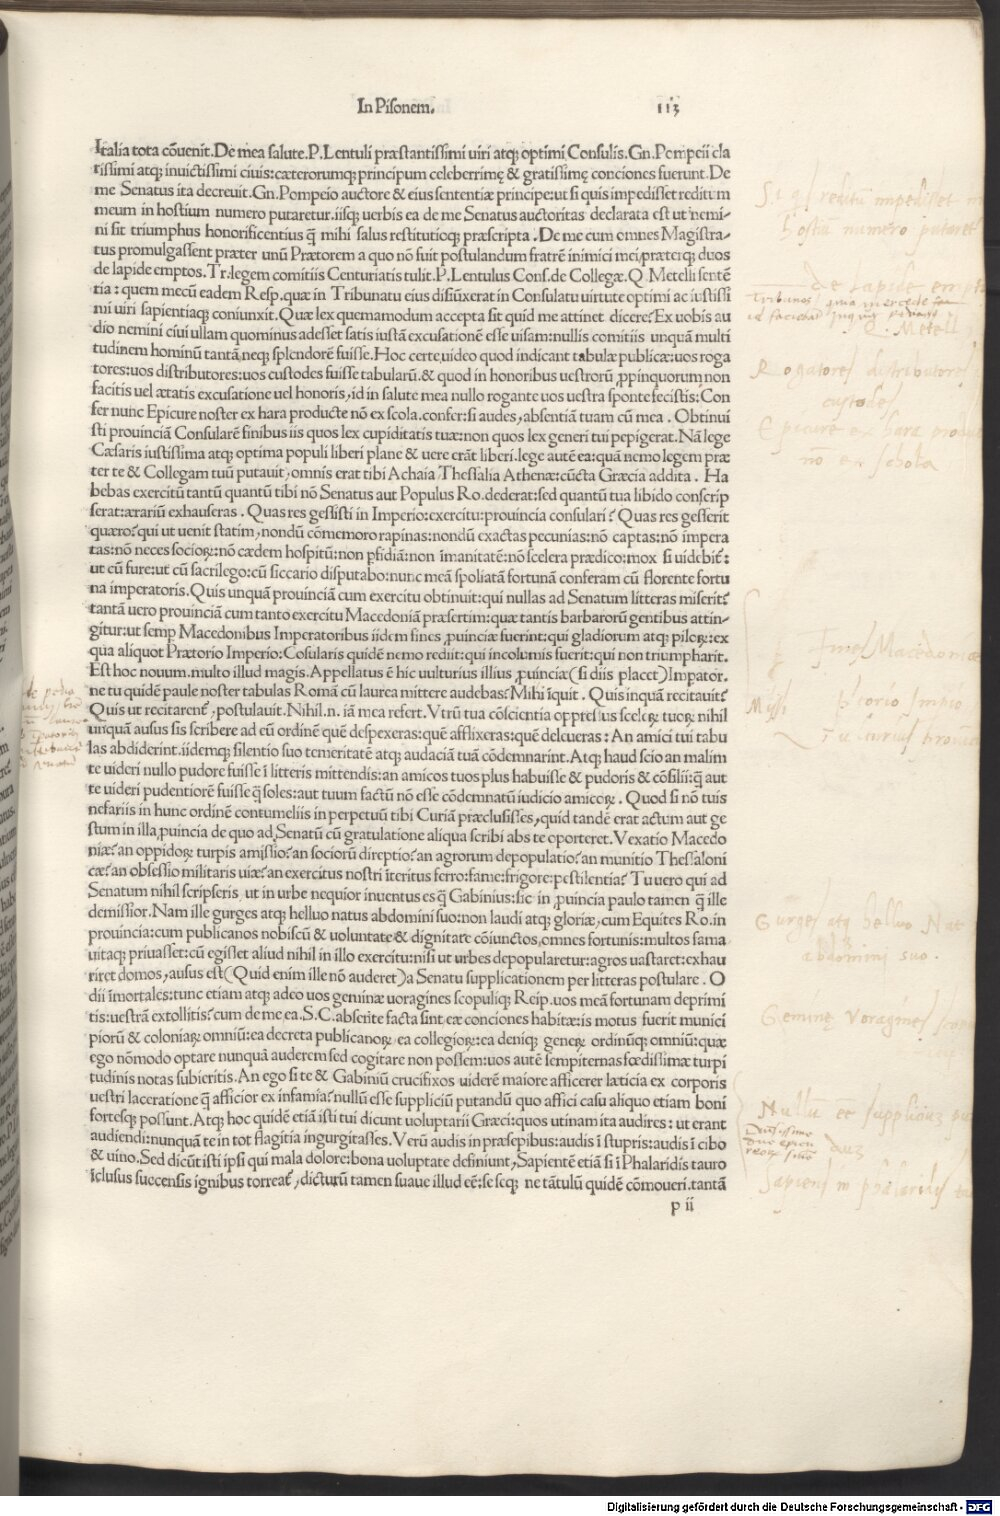 In Pisonem. 113
Italia tota cõuenit. De mea salute. P. Lentuli præstantissimi uiri atq; optimi Consulis. Gn. Pompeii cla
rissimi atq; inuictissimi ciuis: cæterorumq; principum celeberrimę & gratissimę conciones fuerunt. De
me Senatus ita decreuit. Gn. Pompeio auctore & eius sententiæ principe: ut si quis impedisset reditum
meum in hostium numero putaretur. iisq; uerbis ea de me Senatus auctoritas declarata est ut nemi-
ni sit triumphus honorificentius q̃ mihi salus restitutioq; præscripta. De me cum omnes Magistra-
tus promulgassent præter unũ Prætorem a quo nõ fuit postulandum fratrẽ inimici mei, præterq; duos
de lapide emptos. Tr. legem comitiis Centuriatis tulit. P. Lentulus Cons. de Collegæ. Q. Metelli sentẽ
tia: quem mecũ eadem Resp. quæ in Tribunatu eius disiũxerat in Consulatu uirtute optimi ac iustissi
mi uiri sapientiaq; coniunxit. Quæ lex quemamodum accepta sit quid me attinet dicere? Ex uobis au
dio nemini ciui ullam quominus adesset satis iustã excusationẽ esse uisam: nullis comitiis unquã multi
tudinem hominũ tantã, neq; splendorẽ fuisse. Hoc certe uideo quod indicant tabulæ publicæ: uos roga
tores: uos distributores: uos custodes fuisse tabularũ. & quod in honoribus uestrorũ ꝓpinquorum non
facitis uel ætatis excusatione uel honoris, id in salute mea nullo rogante uos uestra sponte fecistis: Con
fer nunc Epicure noster ex hara producte nõ ex scola. confer: si audes, absentiã tuam cũ mea. Obtinui
sti prouinciã Consularẽ finibus iis quos lex cupiditatis tuæ: non quos lex generi tui pepigerat. Nã lege
Cæsaris iustissima atq; optima populi liberi plane & uere erãt liberi. lege autẽ ea: quã nemo legem præ
ter te & Collegam tuũ putauit, omnis erat tibi Achaia Thessalia Athenæ: cũcta Græcia addita. Ha
bebas exercitũ tantũ quantũ tibi nõ Senatus aut Populus Ro. dederat: sed quantũ tua libido conscrip
serat: ærariũ exhauseras. Quas res gessisti in Imperio: exercitu: prouincia consulari? Quas res gesserit
quæro? qui ut uenit statim, nondũ cõmemoro rapinas: nondũ exactas pecunias: nõ captas: nõ impera
tas: nõ neces socioꝝ: nõ cædem hospitũ: non ꝑfidiã: non ĩmanitatẽ: nõ scelera prædico: mox si uidebit᷑:
ut cũ fure: ut cũ sacrilego: cũ siccario disputabo: nunc meã spoliatã fortunã conferam cũ florente fortu
na imperatoris. Quis unquã prouinciã cum exercitu obtinuit: qui nullas ad Senatum litteras miserit?
tantã uero prouinciã cum tanto exercitu Macedoniã præsertim: quæ tantis barbarorũ gentibus attin-
gitur: ut semp Macedonibus Imperatoribus iidem fines ꝓuinciæ fuerint: qui gladiorum atq; piloꝝ: ex
qua aliquot Prætorio Imperio: Cõsularis quidẽ nemo rediit: qui incolumis fuerit: qui non triumpharit.
Est hoc nouum. multo illud magis. Appellatus ẽ hic uulturius illius ꝓuinciæ (si diis placet) Impator.
ne tu quidẽ paule noster tabulas Romã cũ laurea mittere audebas? Mihi ĩquit. Quis inquã recitauit?
Quis ut recitarent᷑, postulauit. Nihil. n. iã mea refert. Vtrũ tua cõscientia oppressus sceleꝝ tuoꝝ nihil
unquã ausus sis scribere ad eũ ordinẽ quẽ despexeras: quẽ afflixeras: quẽ deleueras: An amici tui tabu
las abdiderint. iidemq; silentio suo temeritatẽ atq; audaciã tuã cõdemnarint. Atq; haud scio an malim
te uideri nullo pudore fuisse ĩ litteris mittendis: an amicos tuos plus habuisse & pudoris & cõsilii: q̃ aut
te uideri pudentiorẽ fuisse q̃ soles: aut tuum factũ nõ esse cõdemnatũ iudicio amicoꝝ. Quod si nõ tuis
nefariis in hunc ordinẽ contumeliis in perpetuũ tibi Curiã præclusisses, quid tandẽ erat actum aut ge
stum in illa ꝓuincia de quo ad Senatũ cũ gratulatione aliqua scribi abs te oporteret. Vexatio Macedo
niæ? an oppidoꝝ turpis amissio? an sociorũ direptio? an agrorum depopulatio? an munitio Thessaloni
cæ? an obsessio militaris uiæ? an exercitus nostri ĩteritus ferro: fame: frigore: pestilentia? Tu uero qui ad
Senatum nihil scripseris, ut in urbe nequior inuentus es q̃ Gabinius: sic in ꝓuincia paulo tamen q̃ ille
demissior. Nam ille gurges atq; helluo natus abdomini suo: non laudi atq; gloriæ, cum Equites Ro. in
prouincia: cum publicanos nobiscũ & uoluntate & dignitate cõiunctos, omnes fortunis: multos fama
uitaq; priuasset: cũ egisset aliud nihil in illo exercitu: nisi ut urbes depopularetur: agros uastaret: exhau
riret domos, ausus est (Quid enim ille nõ auderet) a Senatu supplicationem per litteras postulare. O
dii ĩmortales: tunc etiam atq; adeo uos geminæ uoragines scopuliq; Reip. uos meã fortunam deprimi
tis: uestrã extollitis? cum de me ea. S. C. absente facta sint eæ conciones habitæ: is motus fuerit munici
piorũ & coloniaꝝ omniũ: ea decreta publicanoꝝ ea collegioꝝ: ea deniq; geneꝝ ordinũq; omniũ: quæ
ego nõmodo optare nunquã auderem sed cogitare non possem: uos autẽ sempiternas fœdissimæ turpi
tudinis notas subieritis. An ego si te & Gabiniũ crucifixos uiderẽ maiore afficerer læticia ex corporis
uestri laceratione q̃ afficior ex infamia? nullũ esse suppliciũ putandũ quo affici casu aliquo etiam boni
fortesq; possunt. Atq; hoc quidẽ etiã isti tui dicunt uoluptarii Græci: quos utinam ita audires: ut erant
audiendi: nunquã te in tot flagitia ingurgitasses. Verũ audis in præsepibus: audis ĩ stupris: audis ĩ cibo
& uino. Sed dicũt isti ipsi qui mala dolore: bona uoluptate definiunt, Sapientẽ etiã si ĩ Phalaridis tauro
ĩclusus succensis ignibus torreat᷑, dicturũ tamen suaue illud eẽ: se seq; ne tãtulũ quidẽ cõmoueri. tantã
p ii
Si qs reditũ impedisset
hostiũ numero putaret
de lapide empt
Q. Metell
Rogatores distributores
custodes
Epicure ex hara produ
nõ ex schola
fines Macedoniæ
Gurges atq helluo Nat
abdomini suo.
Geminę Voragines
Nullũ eẽ suppliciũ
Sapiens in phalaridis
Digitalisierung gefördert durch die Deutsche Forschungsgemeinschaft - DFG